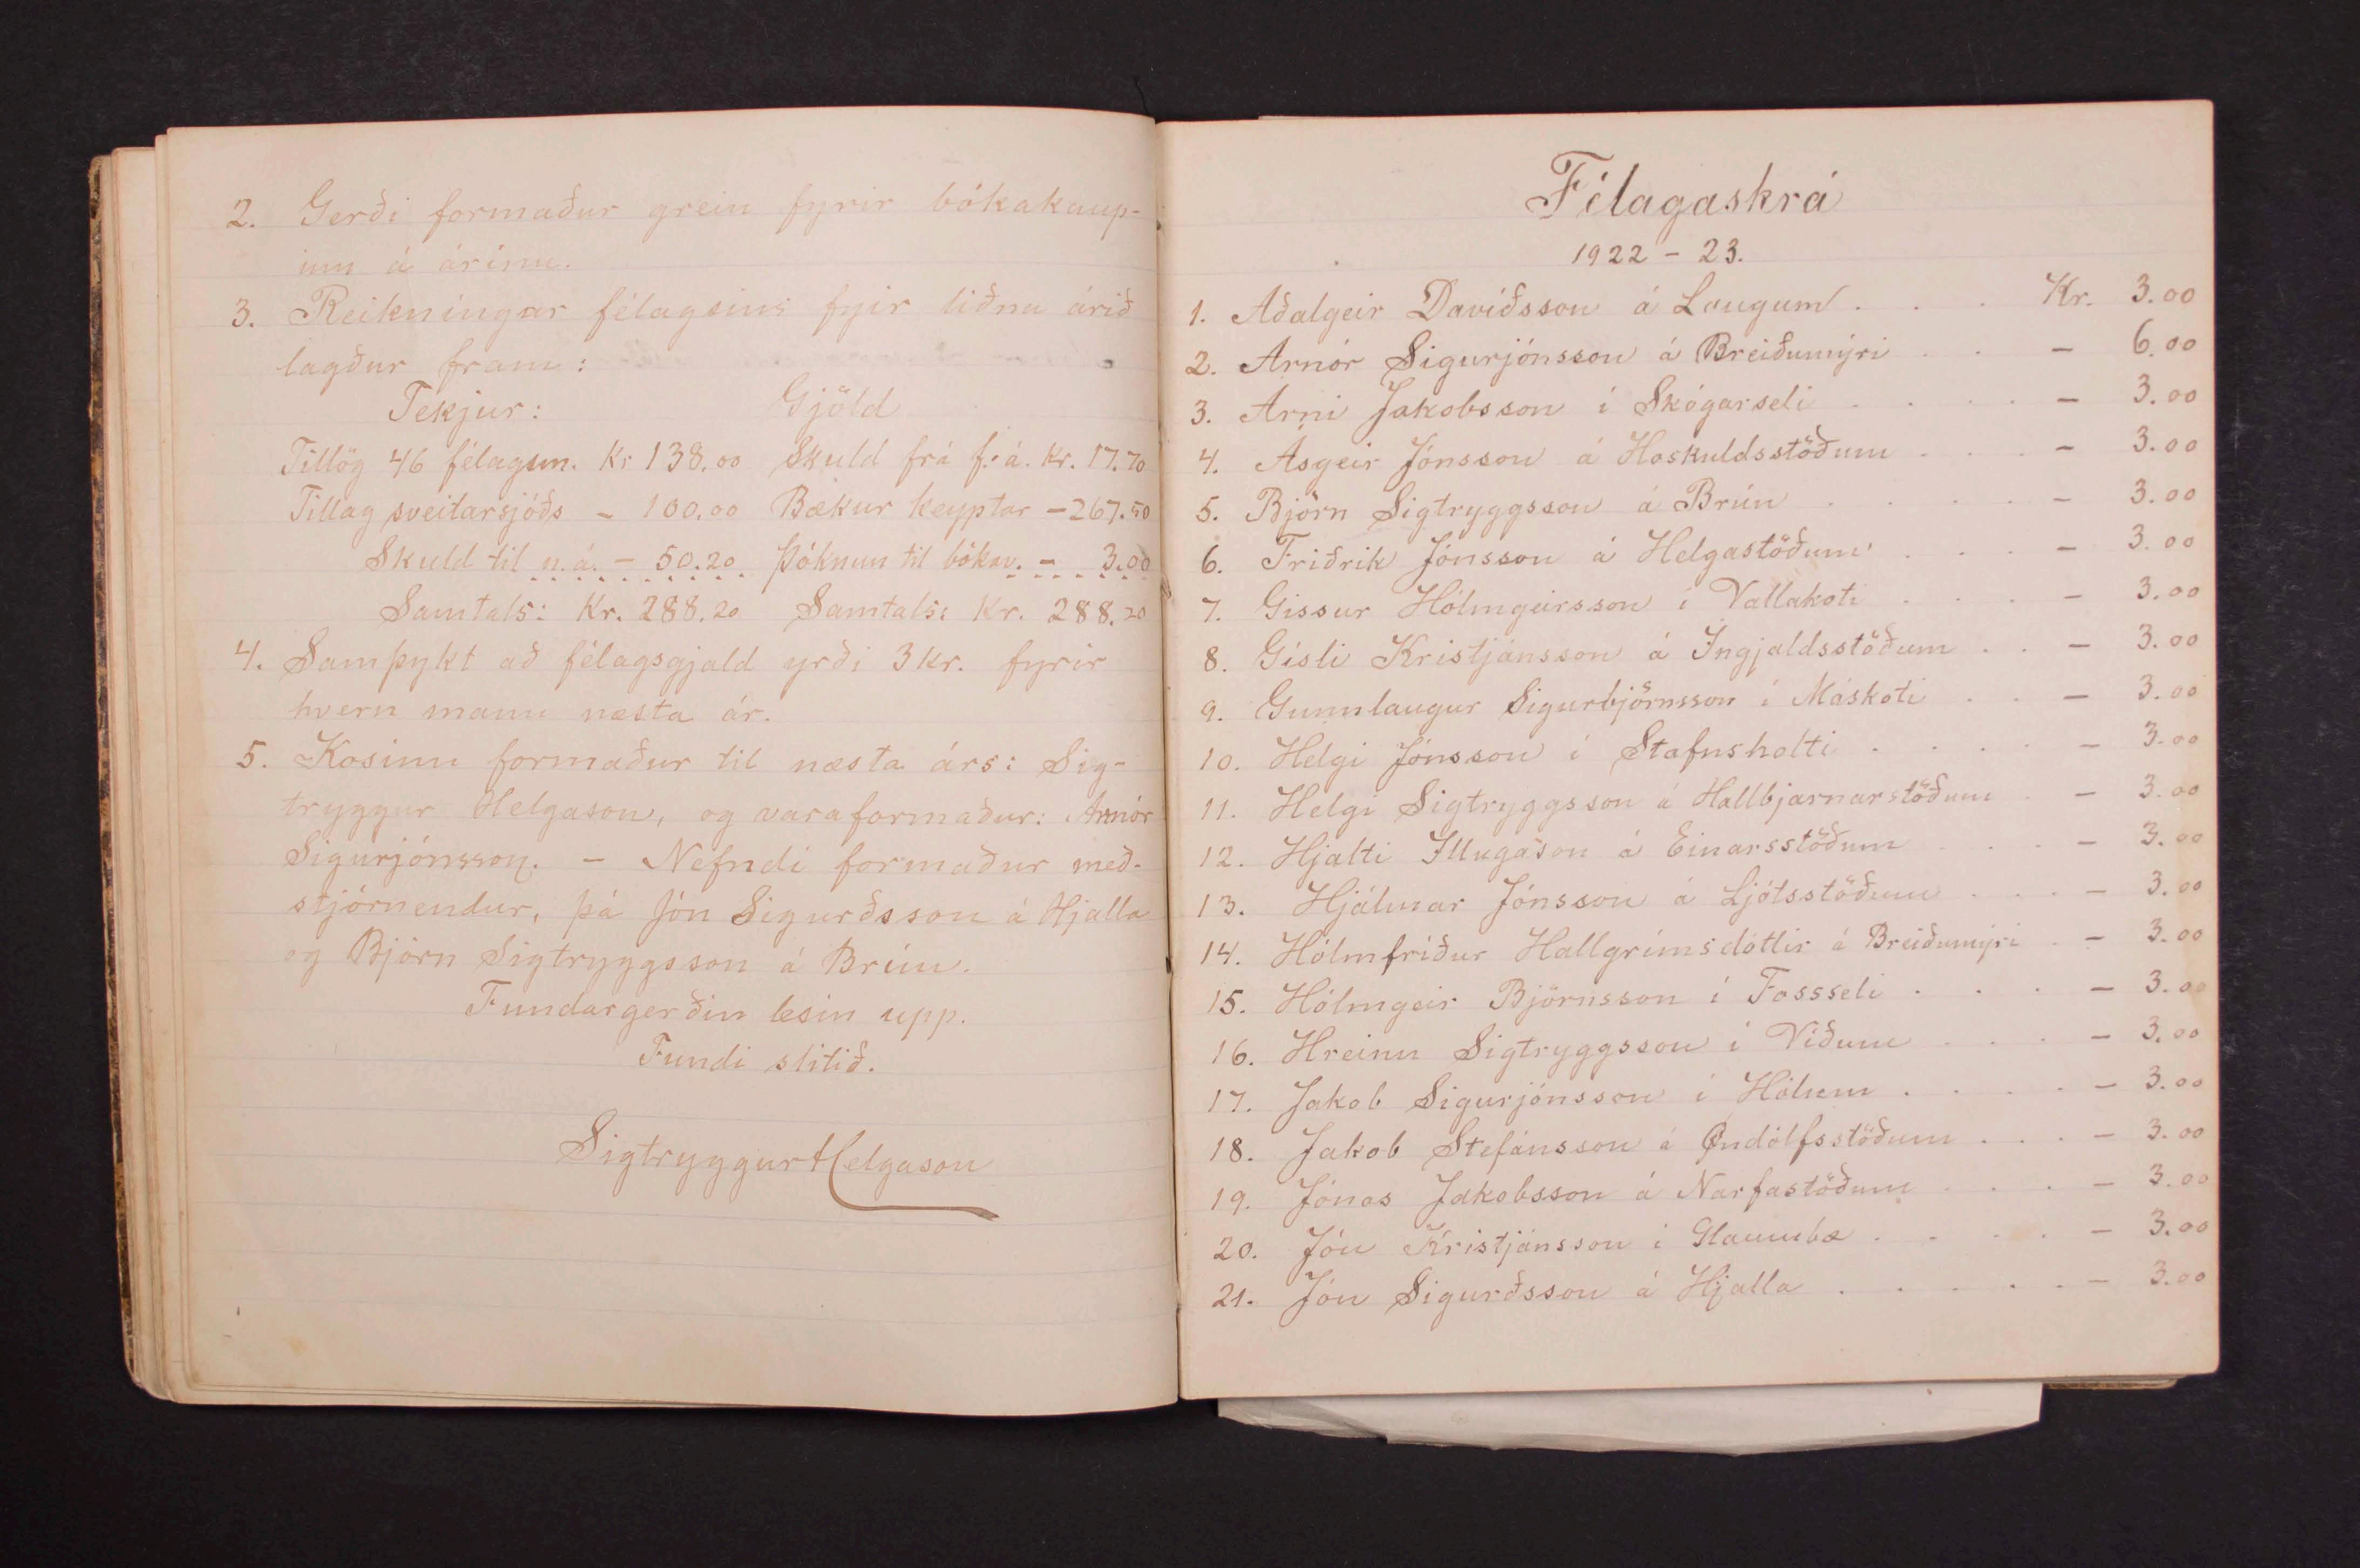 2. Gerði formaður grein fyrir bókakaup-
inn á árinu.
3. Reikningar félagsins fyir liðna árið
lagður fram:
Tekjur: Gjöld
Tillög 46 félagsm. Kr 138.00 Skuld frá f. á. Kr. 17.70
Tillag sveitarsjóðs - 100.00 Bækur keyptar - 267.50
Skuld til n. á. - 50.20 Þóknun til bókav. - 3.00
Samtals: Kr. 288.20 Samtals: Kr. 288.20
4. Samþykt að félagsgjald yrði 3 kr. fyrir
hvern mann næsta ár.
5. Kosinn formaður til næsta árs: Sig-
tryggur Helgason, og varaformaður: Arnór
Sigurjónsson. - Nefndi formaður með-
stjórnendur, þá Jón Sigurðsson á Hjalla
og Björn Sigtryggsson á Brún.
Fundargerðin lesin upp.
Fundi slitið.
Sigtryggur Helgason
Félagaskrá
1922 - 23.
1. Aðalgeir Davíðsson á Laugum . . . Kr. 3.00
2. Arnór Sigurjónsson á Breiðumýri . . - 6.00
3. Árni Jakobsson í Skógarseli . . . . - 3.00
4. Ásgeir Jónsson á Hoskuldsstöðum . . . - 3.00
5. Björn Sigtryggsson á Brún . . . . - 3.00
6. Friðrik Jónsson á Helgastöðum . . . - 3.00
7. Gissur Hólmgeirsson í Vallakoti . . . - 3.00
8. Gísli Kristjánsson á Ingjaldsstöðum . . - 3.00
9. Gunnlaugur Sigurbjörnsson í Máskoti . . - 3.00
10. Helgi Jónsson í Stafnsholti . . . . - 3.00
11. Helgi Sigtryggsson á Hallbjarnarstöðum . - 3.00
12. Hjalti Illugason á Einarsstöðum . . . - 3.00
13. Hjálmar Jónsson á Ljótsstöðum . . . - 3.00
14. Hólmfríður Hallgrímsdóttir á Breiðumýri . - 3.00
15. Hólmgeir Björnsson í Fossseli . . . - 3.00
16. Hreinn Sigtryggsson í Víðum . . . - 3.00
17. Jakob Sigurjónsson í Hólum . . . . - 3.00
18. Jakob Stefánsson á Öndólfsstöðum . . . - 3.00
19. Jónas Jakobsson á Narfastöðum . . . - 3.00
20. Jón Kristjánsson í Glaumbæ . . . . - 3.00
21. Jón Sigurðsson á Hjalla . . . . . - 3.00